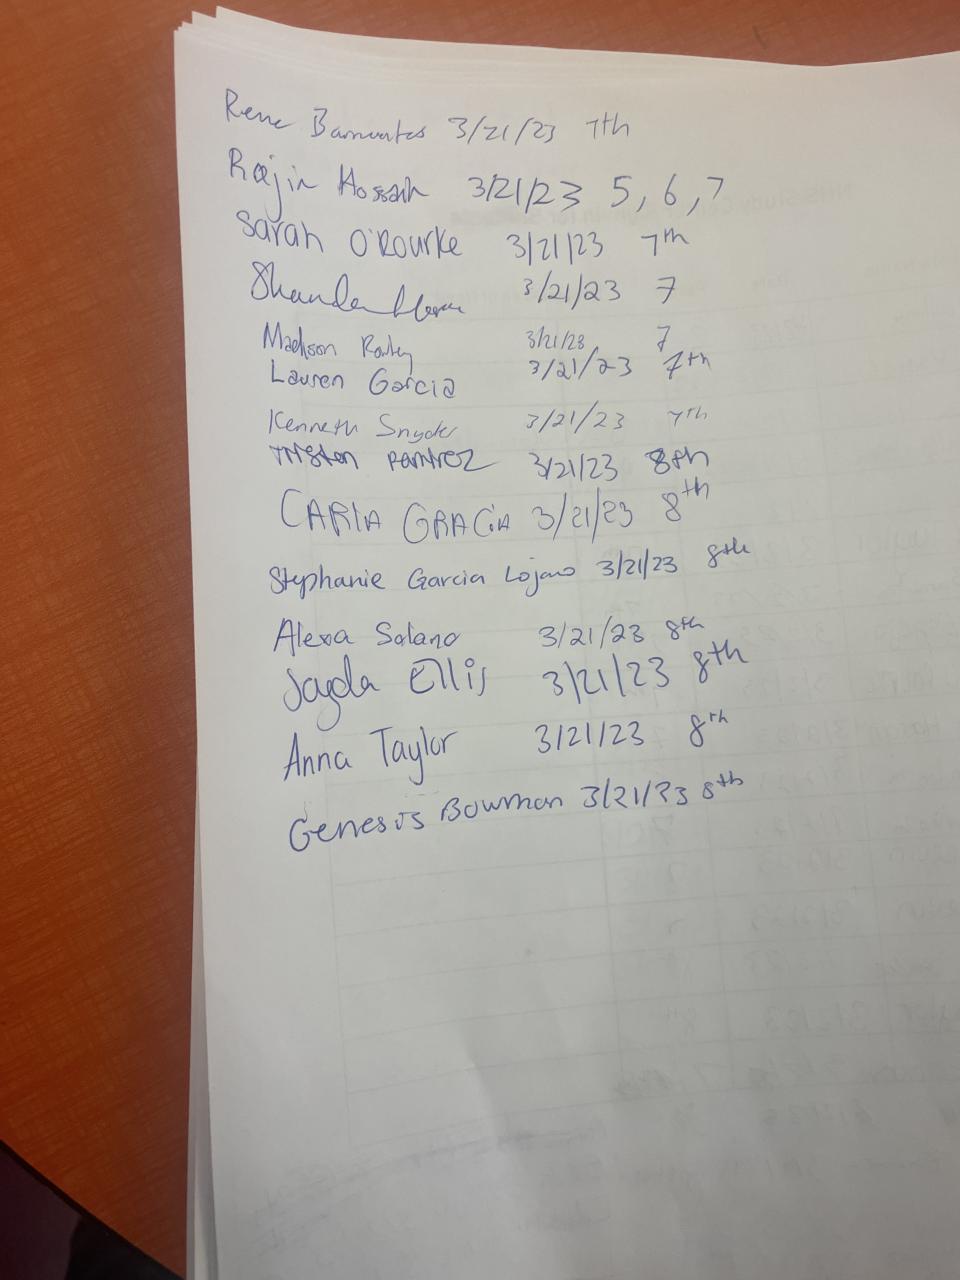 Rene Barrientos 3/21/23 7th
Rajin Hossain 3/21/23 5, 6, 7
Sarah O'Rourke 3/21/23 7th
3/21/23 7
Madison 3/21/23 7
Lauren Garcia 3/21/23 7th
Kenneth Snyder 3/21/23 7th
Tristen Ramirez 3/21/23 8th
CARLA GRACIA 3/21/23 8th
Stephanie Garcia Lojano 3/21/23 8th
Alexa Solano 3/21/23 8th
Jayda Ellis 3/21/23 8th
Anna Taylor 3/21/23 8th
Genesis Bowman 3/21/23 8th